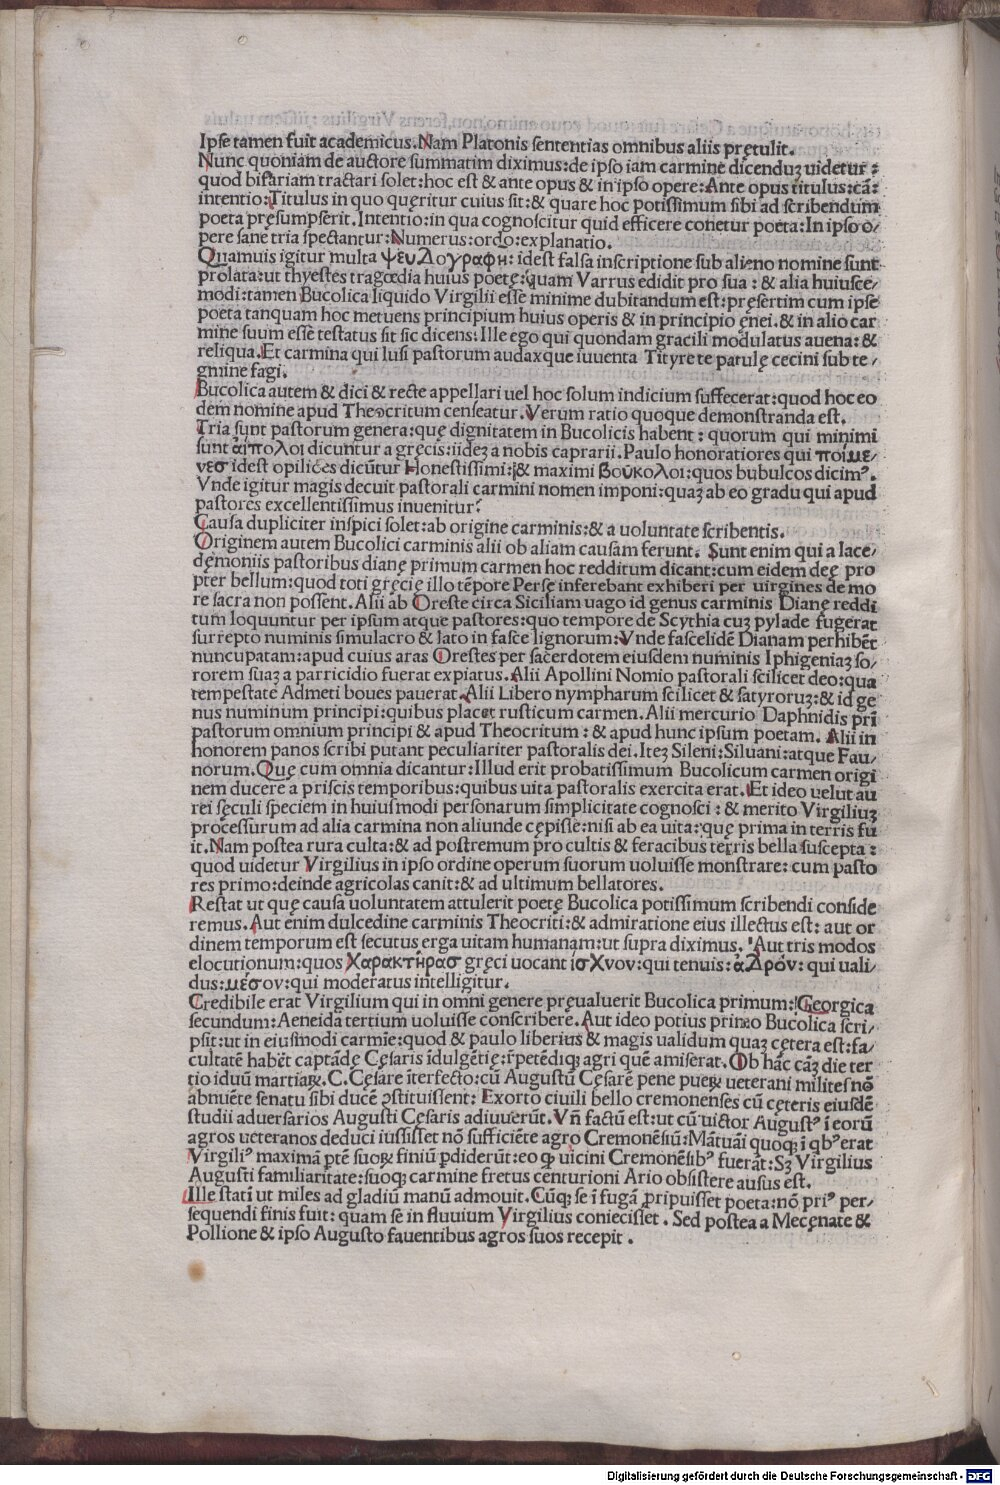 Ipse tamen fuit academicus. Nam Platonis sententias omnibus aliis prętulit.
Nunc quoniam de auctore summatim diximus: de ipso iam carmine dicenduꝫ uidetur:
quod bifariam tractari solet: hoc est & ante opus & in ipso opere: Ante opus titulus: cā:
intentio: Titulus in quo quęritur cuius sit: & quare hoc potissimum sibi ad scribendum
poeta pręsumpserit. Intentio: in qua cognoscitur quid efficere conetur poeta: In ipso o/
pere sane tria spectantur: Numerus: ordo: explanatio.
Quamuis igitur multa ψευδογραφη: idest falsa inscriptione sub alieno nomine sunt
prolata: ut thyestes tragœdia huius poetę: quam Varrus edidit pro sua: & alia huiusce/
modi: tamen Bucolica liquido Virgilii esse minime dubitandum est: pręsertim cum ipse
poeta tanquam hoc metuens principium huius operis & in principio ęnei. & in alio car
mine suum esse testatus sit sic dicens: Ille ego qui quondam gracili modulatus auena: &
reliqua. Et carmina qui lusi pastorum audaxque iuuenta Tityre te patulę cecini sub te/
gmine fagi.
Bucolica autem & dici & recte appellari uel hoc solum indicium suffecerat: quod hoc eo
dem nomine apud Theocritum censeatur. Verum ratio quoque demonstranda est.
Tria sunt pastorum genera: quę dignitatem in Bucolicis habent: quorum qui minimi
sunt ἀιπολοι dicuntur a gręcis: iideꝫ a nobis caprarii. Paulo honoratiores qui ποίμε/
νεσ idest opiliões dicūtur Honestissimi: & maximi βούκολοι: quos bubulcos dicimꝰ.
Vnde igitur magis decuit pastorali carmini nomen imponi: quaꝫ ab eo gradu qui apud
pastores excellentissimus inuenitur?
Causa dupliciter inspici solet: ab origine carminis: & a uoluntate scribentis.
Originem autem Bucolici carminis alii ob aliam causam ferunt. Sunt enim qui a lace/
dęmoniis pastoribus dianę primum carmen hoc redditum dicant: cum eidem deę pro
pter bellum: quod toti gręcię illo tēpore Persę inferebant exhiberi per uirgines de mo
re sacra non possent. Alii ab Oreste circa Siciliam uago id genus carminis Dianę reddi
tum loquuntur per ipsum atque pastores: quo tempore de Scythia cuꝫ pylade fugerat
surrepto numinis simulacro & lato in fasce lignorum: Vnde fascelidē Dianam perhibēt
nuncupatam: apud cuius aras Orestes per sacerdotem eiusdem numinis Iphigeniaꝫ so/
rorem suaꝫ a parricidio fuerat expiatus. Alii Apollini Nomio pastorali scilicet deo: qua
tempestate Admeti boues pauerat. Alii Libero nympharum scilicet & satyroruꝫ: & id ge
nus numinum principi: quibus placet rusticum carmen. Alii mercurio Daphnidis pri
pastorum omnium principi & apud Theocritum: & apud hunc ipsum poetam. Alii in
honorem panos scribi putant peculiariter pastoralis dei. Iteꝫ Sileni: Siluani: atque Fau/
norum. Quę cum omnia dicantur: Illud erit probatissimum Bucolicum carmen origi
nem ducere a priscis temporibus: quibus uita pastoralis exercita erat. Et ideo uelut au
rei sęculi speciem in huiusmodi personarum simplicitate cognosci: & merito Virgiliuꝫ
processurum ad alia carmina non aliunde cępisse: nisi ab ea uita: quę prima in terris fu
it. Nam postea rura culta: & ad postremum pro cultis & feracibus terris bella suscepta:
quod uidetur Virgilius in ipso ordine operum suorum uoluisse monstrare: cum pasto
res primo: deinde agricolas canit: & ad ultimum bellatores.
Restat ut quę causa uoluntatem attulerit poetę Bucolica potissimum scribendi conside
remus. Aut enim dulcedine carminis Theocriti: & admiratione eius illectus est: aut or
dinem temporum est secutus erga uitam humanam: ut supra diximus. Aut tris modos
elocutionum: quos χαρακτῆρασ gręci uocant ἰσχνον: qui tenuis: ἁδρόν: qui uali/
dus: μέσον: qui moderatus intelligitur.
Credibile erat Virgilium qui in omni genere pręualuerit Bucolica primum: Georgica
secundum: Aeneida tertium uoluisse conscribere. Aut ideo potius primo Bucolica scri/
psit: ut in eiusmodi carmīe: quod & paulo liberius & magis ualidum quaꝫ cętera est: fa/
cultatē habēt captādę Cęsaris īdulgētię: r̄petēdiqꝫ agri quē amiserat. Ob hāc cāꝫ die ter
tio iduū martiaꝝ. C. Cęsare īterfecto: cū Augustū Cęsarē pene pueꝝ ueterani milites nō
abnuēte senatu sibi ducē ꝯstituissent: Exorto ciuili bello cremonenses cū cęteris eiusdē
studii aduersarios Augusti Cęsaris adiuuerūt. Vn̄ factū est: ut cū uictor Augustꝰ ī eorū
agros ueteranos deduci iussisset nō sufficiēte agro Cremonēsiū: Mātuāi quoqꝫ ī qbꝰ erat
Virgiliꝰ maximā ꝑtē suoꝝ finiū ꝑdiderūt: eo ꝙ uicini Cremonēsibꝰ fuerāt: Sꝫ Virgilius
Augusti familiaritate: suoqꝫ carmine fretus centurioni Ario obsistere ausus est.
Ille statī ut miles ad gladiū manū admouit. Cūqꝫ se ī fugā ꝓripuisset poeta: nō priꝰ per/
sequendi finis fuit: quam se in fluuium Virgilius coniecisset. Sed postea a Mecęnate &
Pollione & ipso Augusto fauentibus agros suos recepit.
Digitalisierung gefördert durch die Deutsche Forschungsgemeinschaft - DFG